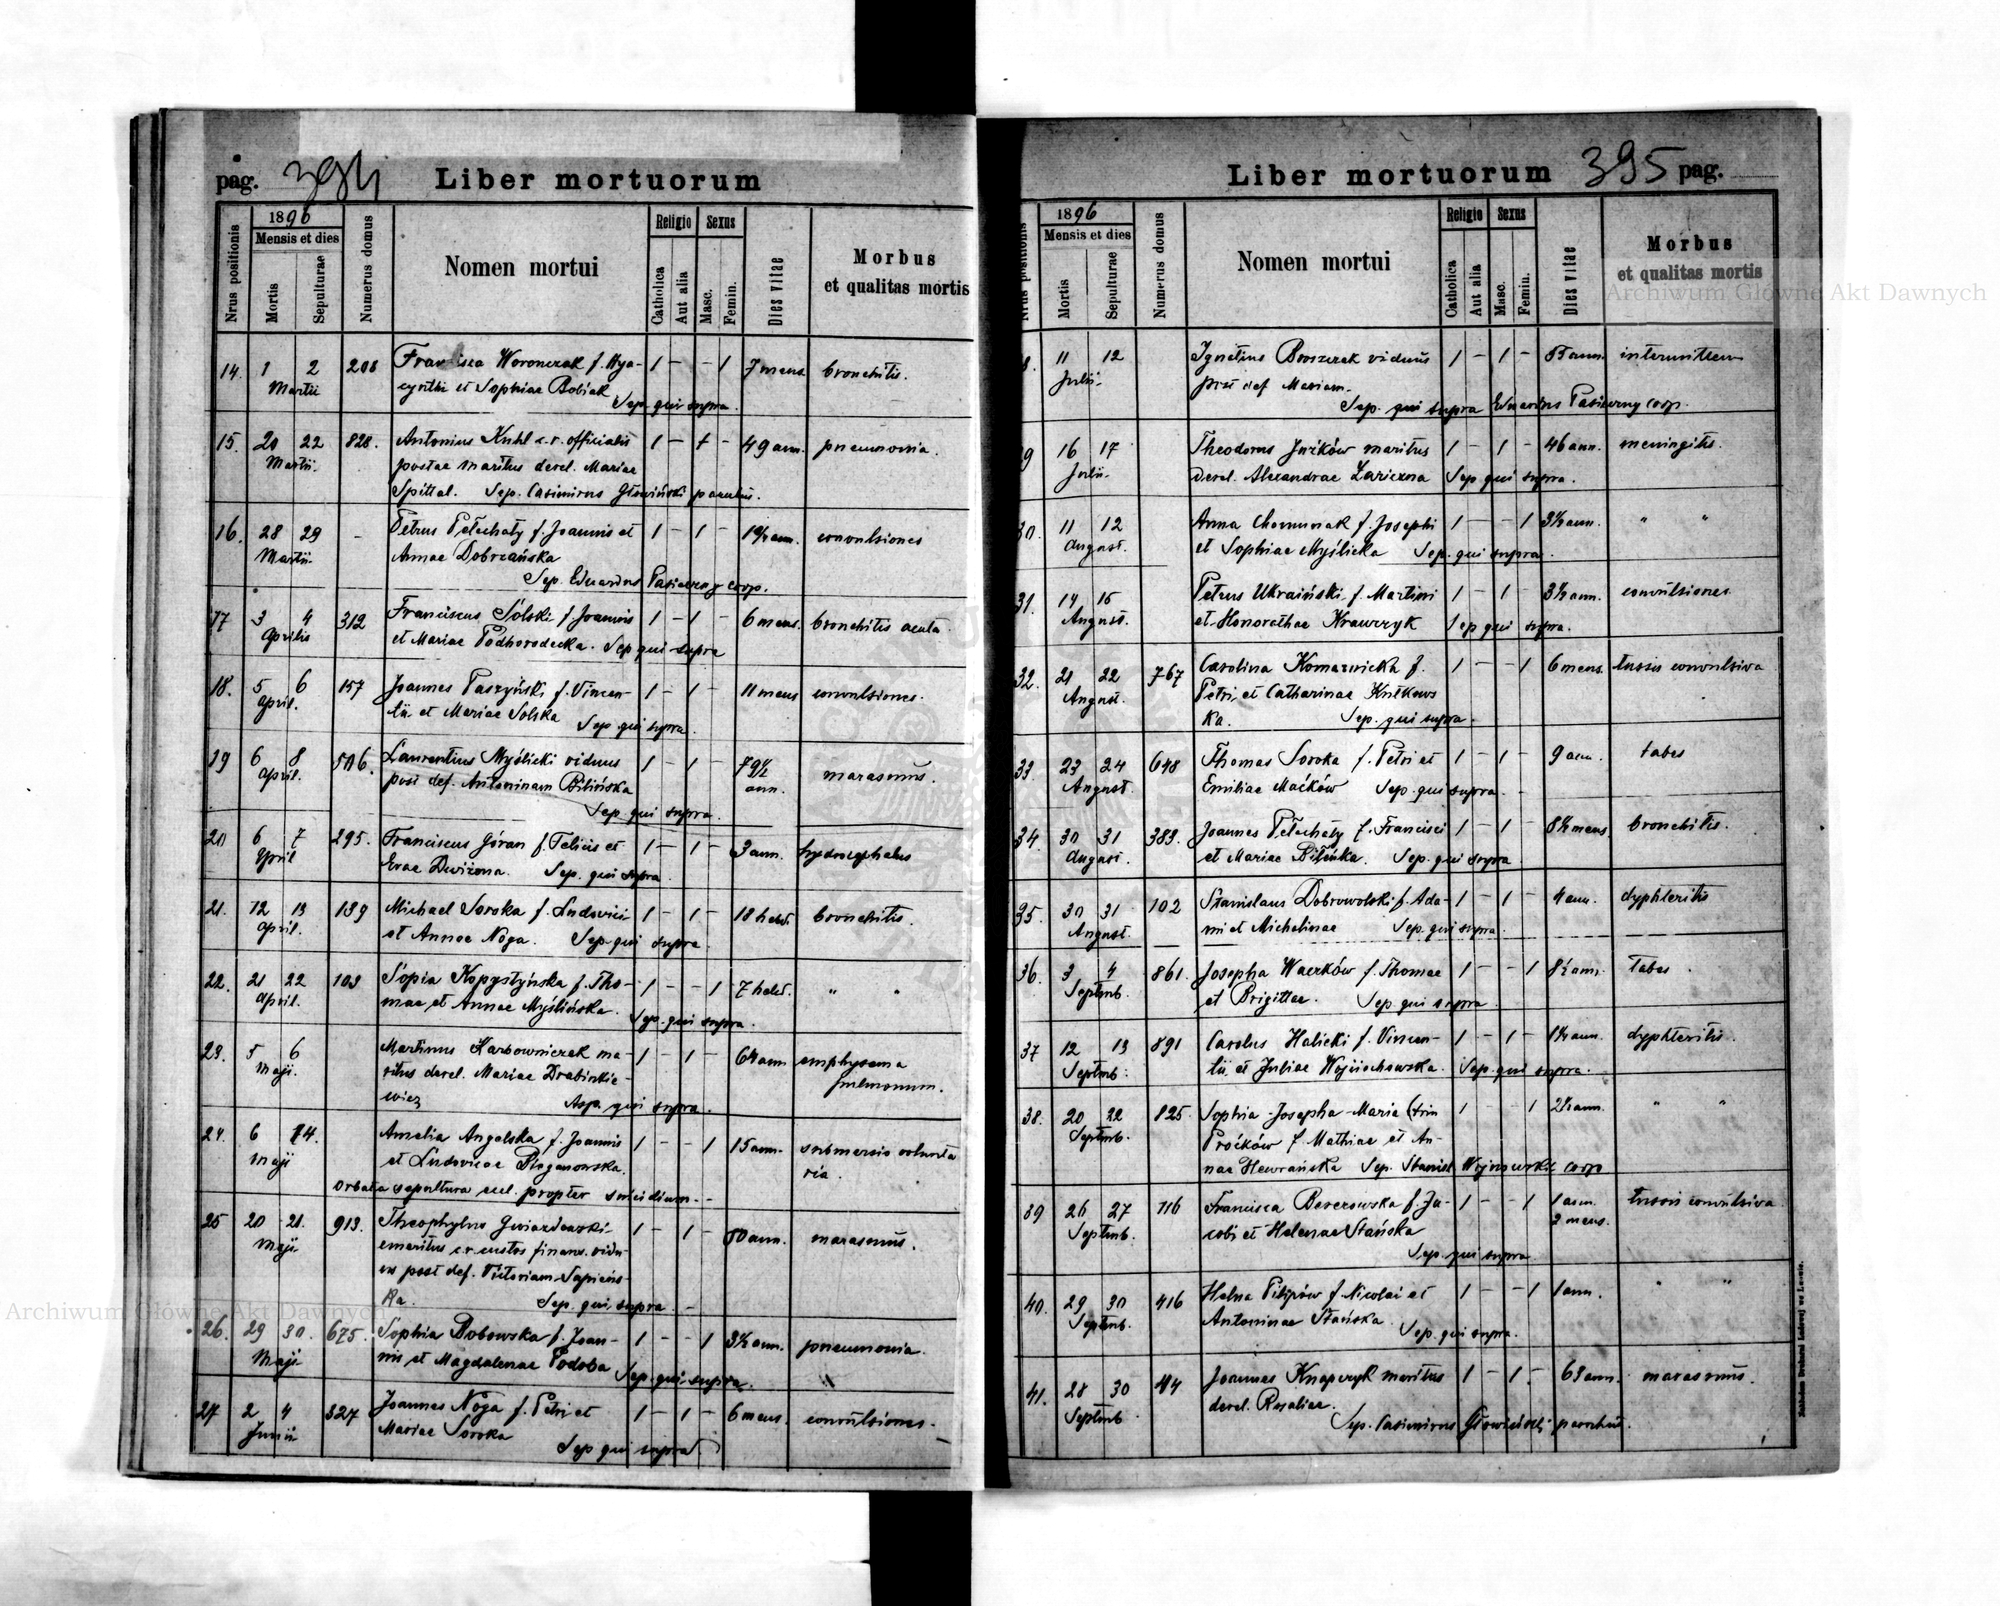 pag. 394 Liber mortuorum
Nrus positionis
1896
Mensis et dies
Mortis
Sepulturae
Numerus domus
Nomen mortui
Religio
Catholica
Aut alia
Sexus
Masc.
Femin.
Dies vitae
Morbus
et qualitas mortis
14. 1 2 208 Francisca Woronczak f. Hya- 1 - - 1 7 mens. bronchitis.
Martii cynthi et Sophiae Bobiak
Sep. qui supra.
15. 20 22 828. Antonius Kuhl c.r. officialis 1 - 1 - 49 ann. pneumonia.
Martii. postae maritus derel. Mariae
Spittal. Sep. Casimirus Głowiński parochus.
16. 28 29 - Petrus Pełechaty f. Joannis et 1 - 1 - ann. convulsiones
Martii. Annae Dobrzańska
Sep. Eduardus Pasieczny coop.
17 3 4 312 Franciscus Solski f. Joannis 1 - 1 - 6 mens. bronchitis acuta
Aprilis et Mariae Podhorodecka. Sep qui supra
18. 5 6 157 Joannes Paszyński f. Vincen- 1 - 1 - 11 mens convulsiones.
April. tii et Mariae Solska Sep. qui supra.
19 6 8 506. Laurentius Myślicki viduus 1 - 1 - 79½
April. post def. Antoninam Bilińska ann. marasmus.
Sep. qui supra.
20 6 7 295. Franciscus Góran f. Felicis et 1 - 1 - 3 ann. hydrocephalus
April Evae Dwiżona. Sep. qui supra.
21. 12 13 139 Michael Soroka f. Ludovici 1 - 1 - 18 hebd. bronchitis.
April. et Annae Noga. Sep. qui supra
22. 21 22 103 Sopia Kopystyńska f. Tho- 1 - - 1 7 hebd. " "
April. mae et Annae Myślińska.
Sep. qui supra.
23. 5 6 Martinus Karbowniczek ma- 1 - 1 - ann emphysema
Maji. ritus derel. Mariae Drabinkie- pulmonum.
wicz Sep. qui supra.
24. 6 14. Amalia Angelska f. Joannis 1 - - 1 15 ann. submersio volunta
Maji et Ludovicae ria.
Orbata sepultura eccl. propter suicidium. -
25 20 21. 913. Theophylus Gwiazdowski 1 - 1 - 80 ann. marasmus.
Maji emeritus c.r. custos finans. vidu-
us post def. Victoriam Sapieńs-
ka. Sep. qui supra. -
26. 29 30. 675. Sophia Bobowska f. Joan- 1 - - 1 3½ ann. pneumonia.
Maji nis et Magdalenae Podoba Sep. qui supra.
27 2 4 327 Joannes Noga f. Petri et 1 - 1 - 6 mens. convulsiones.
Junii Mariae Soroka
Sep qui supra
Liber mortuorum 395 pag.
Nrus positionis
1896
Mensis et dies
Mortis
Sepulturae
Numerus domus
Nomen mortui
Religio
Catholica
Aut alia
Sexus
Masc.
Femin.
Dies vitae
Morbus
et qualitas mortis
8. 11 12 Ignatius viduus 1 - 1 - ann.
Julii. post def Mariam.
Sep. qui supra Eduardus Pasieczny coop.
9 16 17 Theodorus Jurków maritus 1 - 1 - 46 ann. meningitis.
Julii. derel. Alexandrae Sep qui supra.
30. 11 12 Anna Chomuniak f. Josephi 1 - - 1 3½ ann. " "
August. et Sophiae Myślicka Sep. qui supra.
31. 14 15 Petrus Ukraiński f. Martini 1 - 1 - 3½ ann. convulsiones.
August. et Honorathae Krawczyk Sep qui supra.
32. 21 22 767 Carolina Komarnicka f. 1 - - 1 6 mens. tussis convulsiva
August. Petri et Catharinae Kułkows
ka. Sep. qui supra.
33. 23 24 648 Thomas Soroka f. Petri et 1 - 1 - 9 ann. tabes
August. Emiliae Maćków Sep. qui supra.
34. 30 31 383. Joannes Pełechaty f. Francisci 1 - 1 - 8½ mens. bronchitis.
August. et Mariae Bilińka. Sep. qui supra
35. 30 31 102 Stanislaus Dobrowolski f. Ada- 1 - 1 - 4 ann. dyphteritis
August. mi et Michelinae Sep. qui supra.
36. 3 4 861. Josepha Waćków f. Thomae 1 - - 1 8½ ann. Tabes.
Septmb. et Brigittae. Sep qui supra.
37 12 13 891 Carolus Halicki f. Vincen- 1 - 1 - 1½ ann. dyphteritis.
Septmb. tii et Juliae Wojciechowska. Sep. qui supra.
38. 20 22 825. Sophia-Josepha-Maria 1 - 1 2½ ann. " "
Septmb. Proćków f. Mathiae et An-
nae Sep. Stanisl coop
39 26 27 716 Francisca Beverowska f. Ja- 1 - - 1 1 ann. tussis convulsiva
Septmb. cobi et Helenae Stańska 2 mens.
Sep. qui supra
40. 29 30 416 Helna Pilipów f. Nicolai et 1 - - 1 1 ann. " "
Septmb. Antoninae Stańska.
Sep. qui supra.
41. 28 30 Joannes Knapczyk maritus 1 - 1 - 63 ann. marasmus.
Septmb derel. Rosaliae.
Sep. Casimirus Głowiński parochus.
Archiwum Główne Akt Dawnych
Archiwum Główne Akt Dawnych